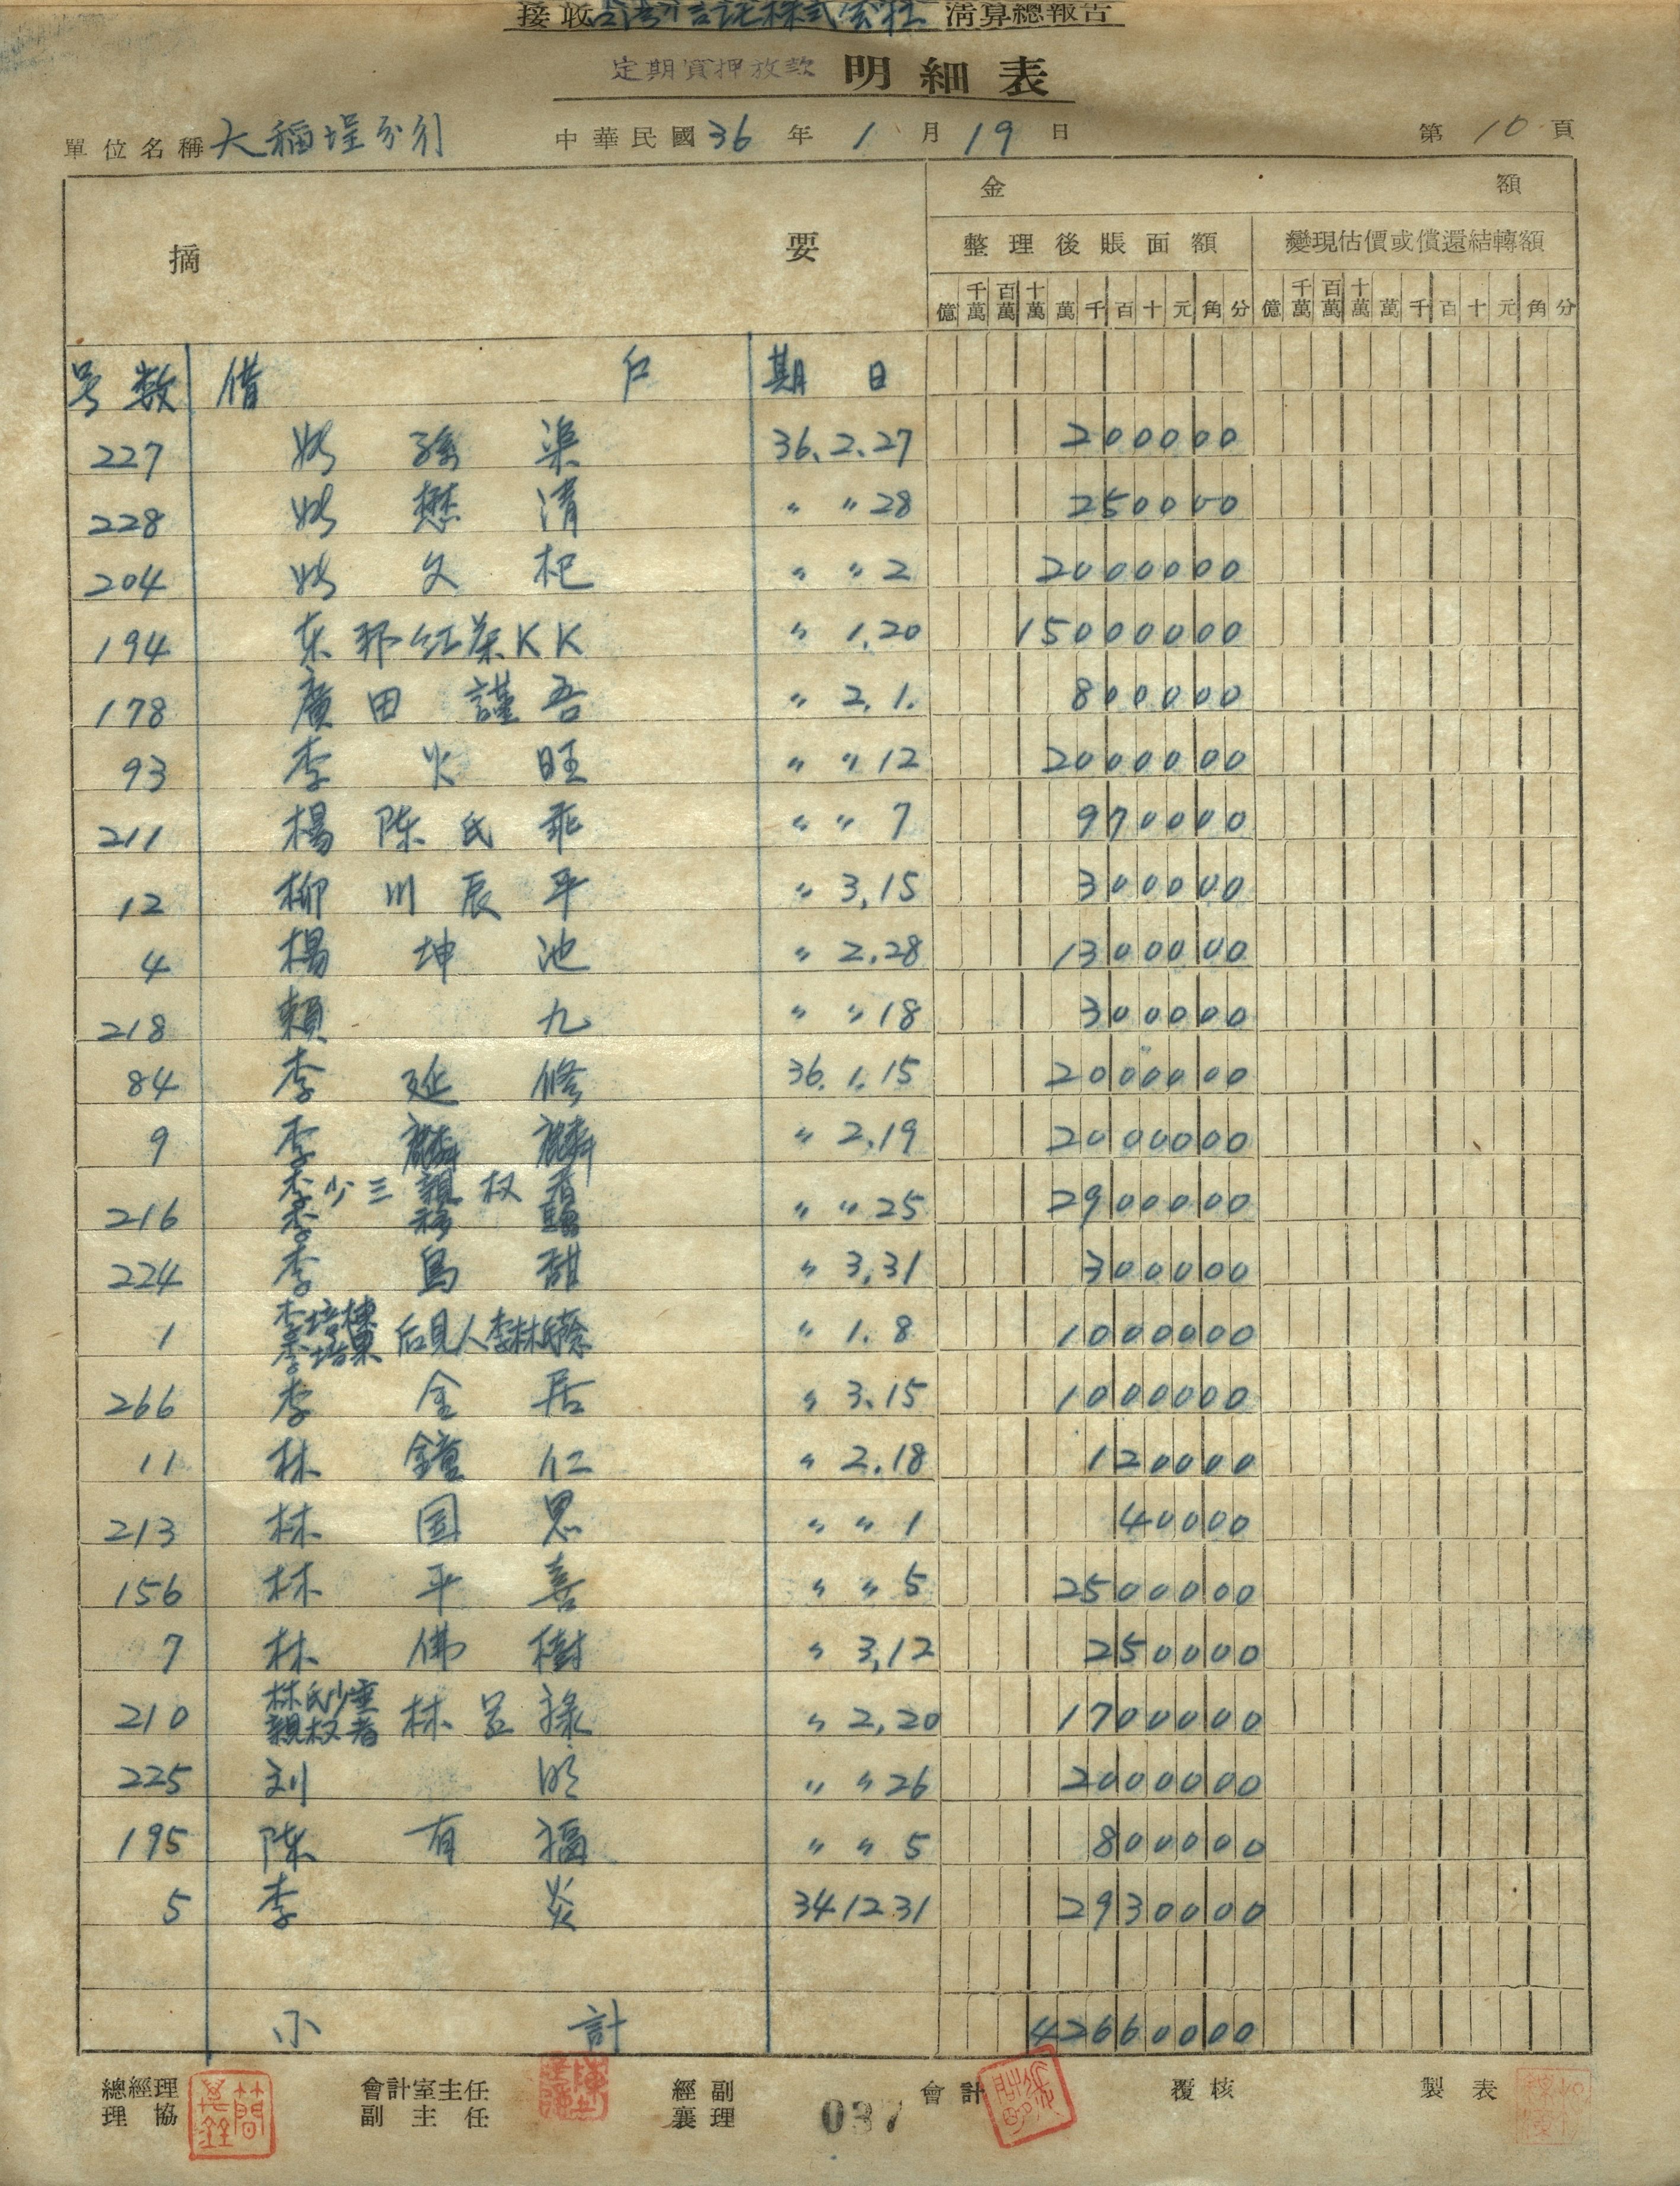 接收台湾信託株式会社清算總報告
定期質押放款 明細表
單位名稱 大稲埕分行 中華民國36年1月19日 第10頁
摘要 金額
整理後賬面額 變現估價或償還結轉額
億 千萬 百萬 十萬 萬 千 百 十 元 角 分 億 千萬 百萬 十萬 萬 千 百 十 元 角 分
号数 借戶 期日
227 渠 36.2.27 200000
228 懋清 〃 〃 28 250000
204 文杞 〃 〃 2 2000000
194 东邦红茶KK 〃 1.20 15000000
178 廣田謹吾 〃 2.1. 800000
93 李火旺 〃 〃 12 2000000
211 楊陈氏乖 〃 〃 7 970000
12 柳川辰平 〃 3,15 300000
4 楊坤池 〃 2,28 1300000
218 賴九 〃 〃 18 300000
84 李延修 36.1.15 2000000
9 李 〃 2.19 2000000
李少三親权者
216 李 〃 〃 25 2900000
224 李烏甜 〃 3,31 300000
李培棟
1 李培 后見人李林氏 〃 1.8 1000000
266 李金居 〃 3.15 1000000
11 林鐘仁 〃 2.18 120000
213 林国思 〃 〃 1 40000
156 林平喜 〃 〃 5 2500000
7 林佛樹 〃 3,12 250000
林氏少
210 親权者 林呈祿 〃 2,20 1700000
225 刘明 〃 〃 26 2000000
195 陈有福 〃 〃 5 800000
5 李炎 34 12 31 2930000
小計 42660000
總經理 會計室主任 經副 會計 覆核 製表
理協 副主任 襄理
037